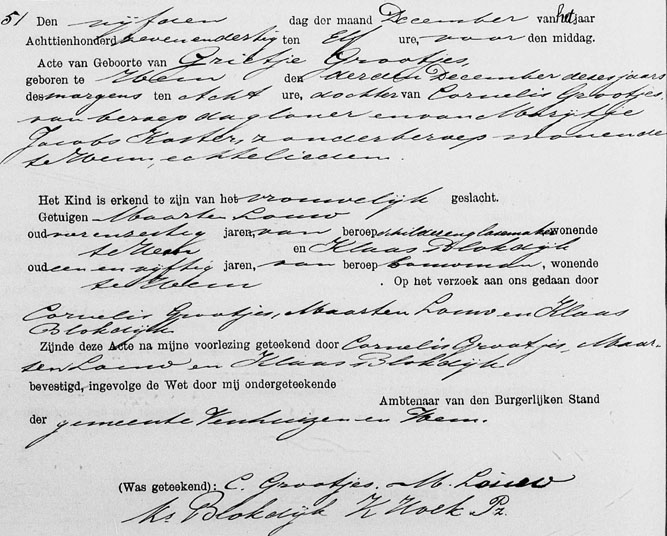 51 Den vijfden dag der maand December van het jaar
Achttienhonderd zevenendertig ten Elf ure, voor den middag.
Acte van Geboorte van Grietje Grootjes,
geboren te Hem den derden December dezes jaars
des morgens ten Acht ure, dochter van Cornelis Grootjes,
van beroep daglooner en van Marijtje
Jacobs Koster, zonder beroep wonende
te Hem, echtelieden.
Het Kind is erkend te zijn van het vrouwelijk geslacht.
Getuigen Maarten Louw
oud vierenzestig jaren, van beroep schilder en glasemaker wonende
te Hem en Klaas Blokdijk
oud een en vijftig jaren, van beroep bouwman, wonende
te Hem . Op het verzoek aan ons gedaan door
Cornelis Grootjes, Maarten Louw en Klaas
Blokdijk
Zijnde deze Acte na mijne voorlezing geteekend door Cornelis Grootjes, Maar-
ten Louw en Klaas Blokdijk
bevestigd, ingevolge de Wet door mij ondergeteekende
Ambtenaar van den Burgerlijken Stand
der gemeente Venhuizen en Hem.
(Was geteekend): C. Grootjes. M. Louw
Ks Blokdijk K Hoek Pz.